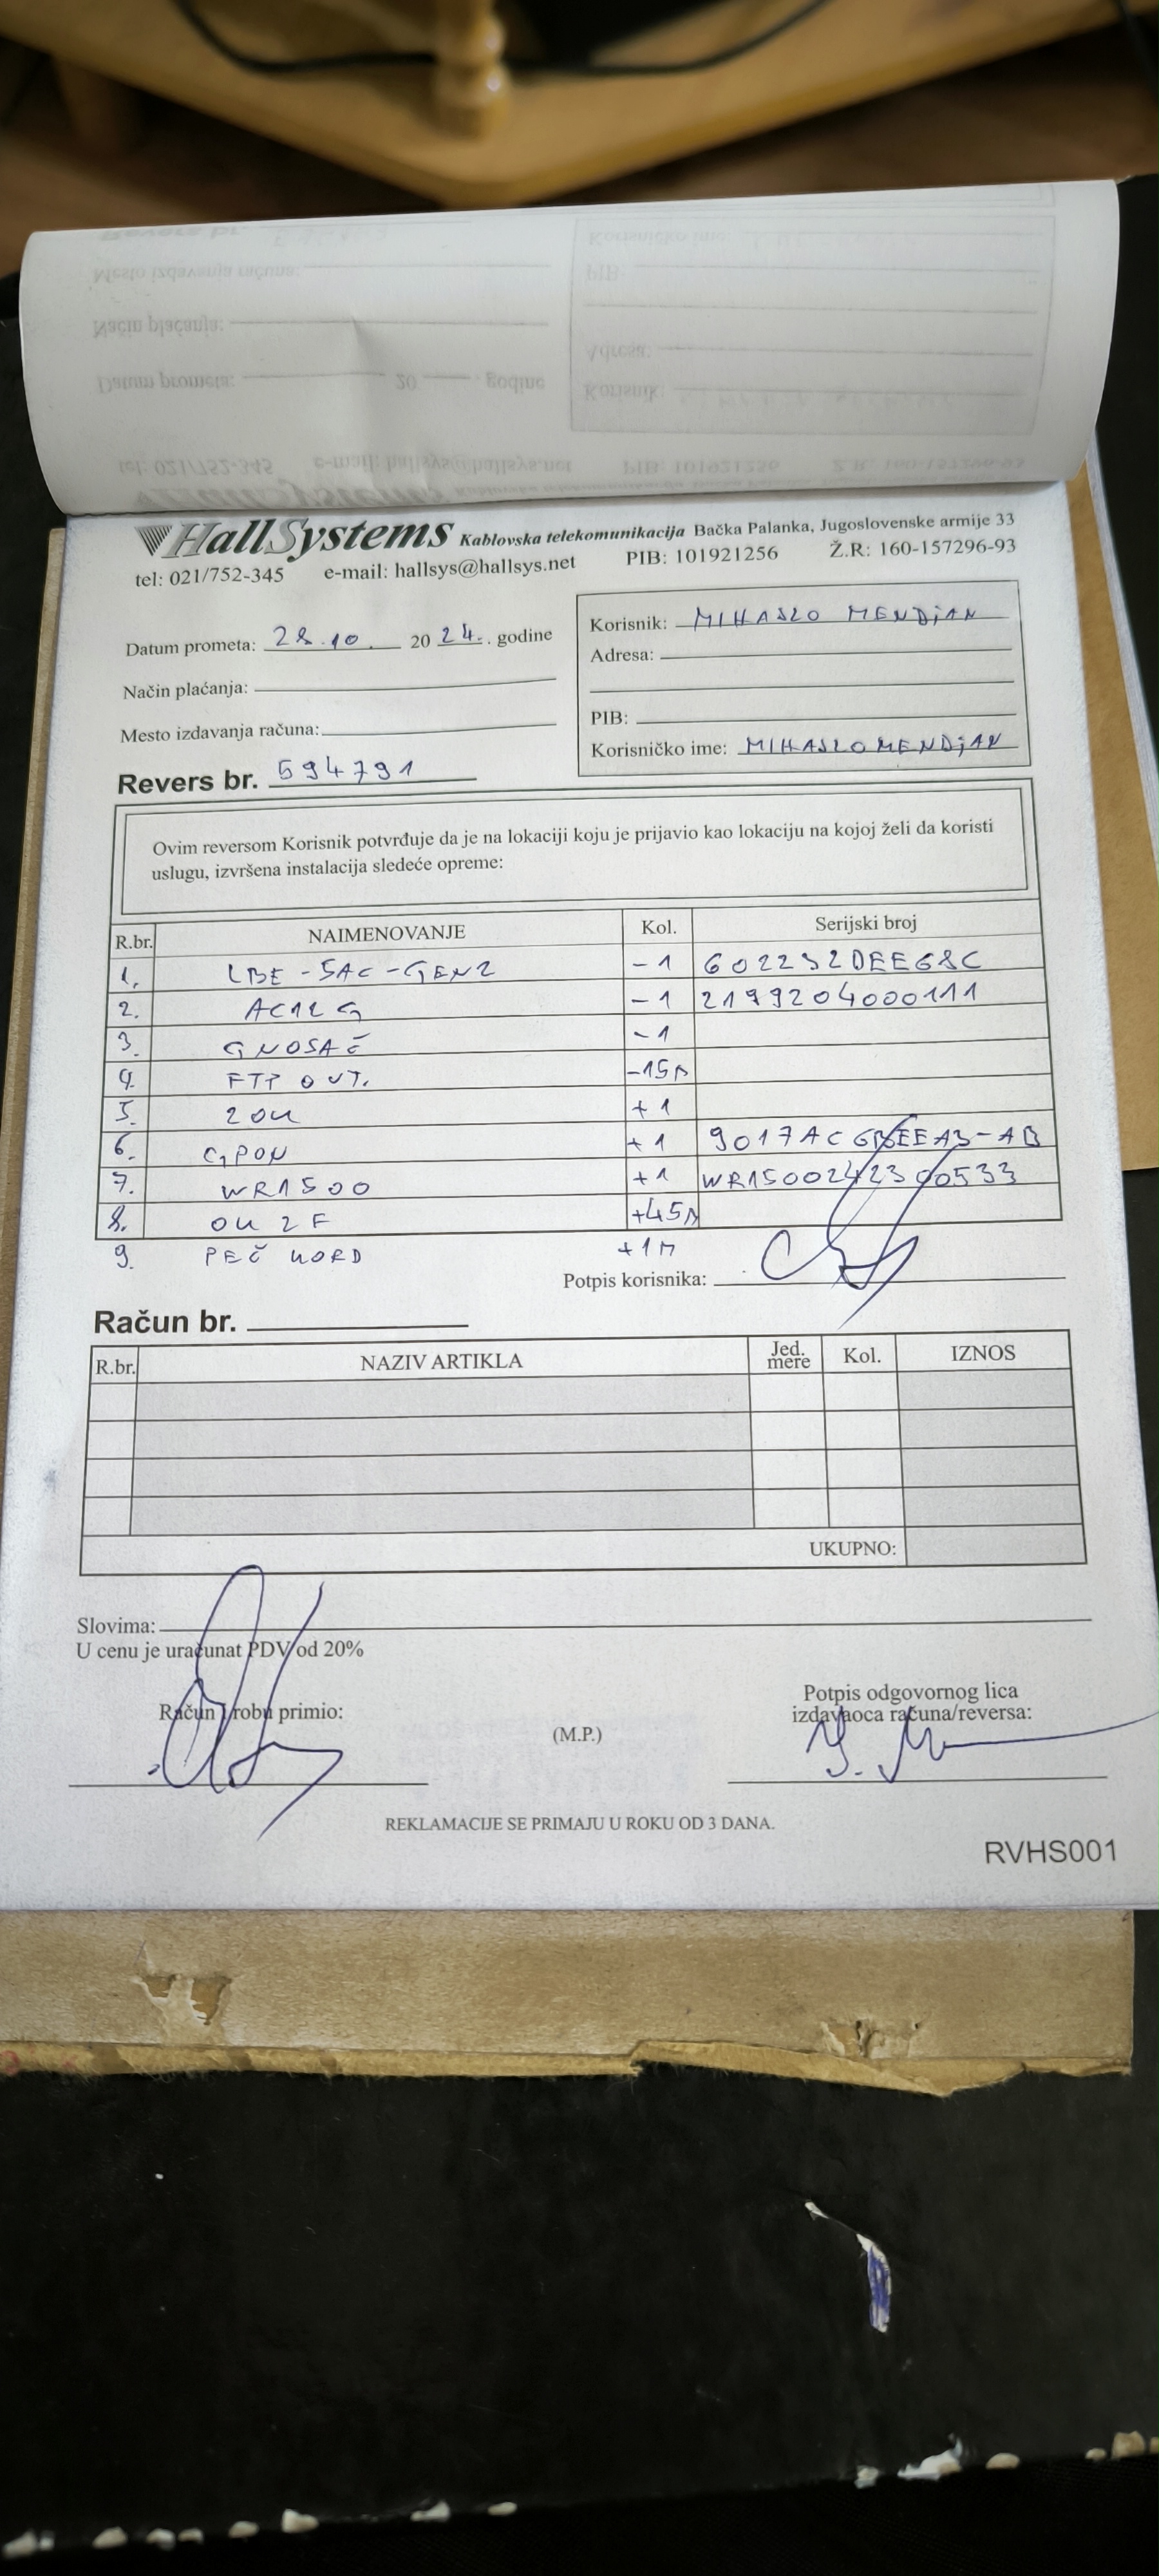 HallSystems Kablovska telekomunikacija Bačka Palanka, Jugoslovenske armije 33
tel: 021/752-345 e-mail: hallsys@hallsys.net PIB: 101921256 Ž.R: 160-157296-93
Datum prometa: 28.10. 2024. godine
Način plaćanja:
Mesto izdavanja računa:
Korisnik: MIHAJLO MENDJAN
Adresa:
PIB:
Korisničko ime: MIHAJLOMENDJAN
Revers br. 594791
Ovim reversom Korisnik potvrđuje da je na lokaciji koju je prijavio kao lokaciju na kojoj želi da koristi
uslugu, izvršena instalacija sledeće opreme:
R.br. NAIMENOVANJE Kol. Serijski broj
1. LBE-5AC-GEN2 -1 602232DEE68C
2. AC12G -1 2199204000111
3. G NOSAČ -1
4. FTP OUT. -15m
5. ZOK +1
6. GPON +1
7. WR1500 +1 WR1500242300533
8. OK 2F +45m
9. PEČ KORD +1m
Potpis korisnika:
Račun br.
R.br. NAZIV ARTIKLA Jed. mere Kol. IZNOS
UKUPNO:
Slovima:
U cenu je uračunat PDV od 20%
Račun i robu primio:
(M.P.)
Potpis odgovornog lica
izdavaoca računa/reversa:
REKLAMACIJE SE PRIMAJU U ROKU OD 3 DANA.
RVHS001